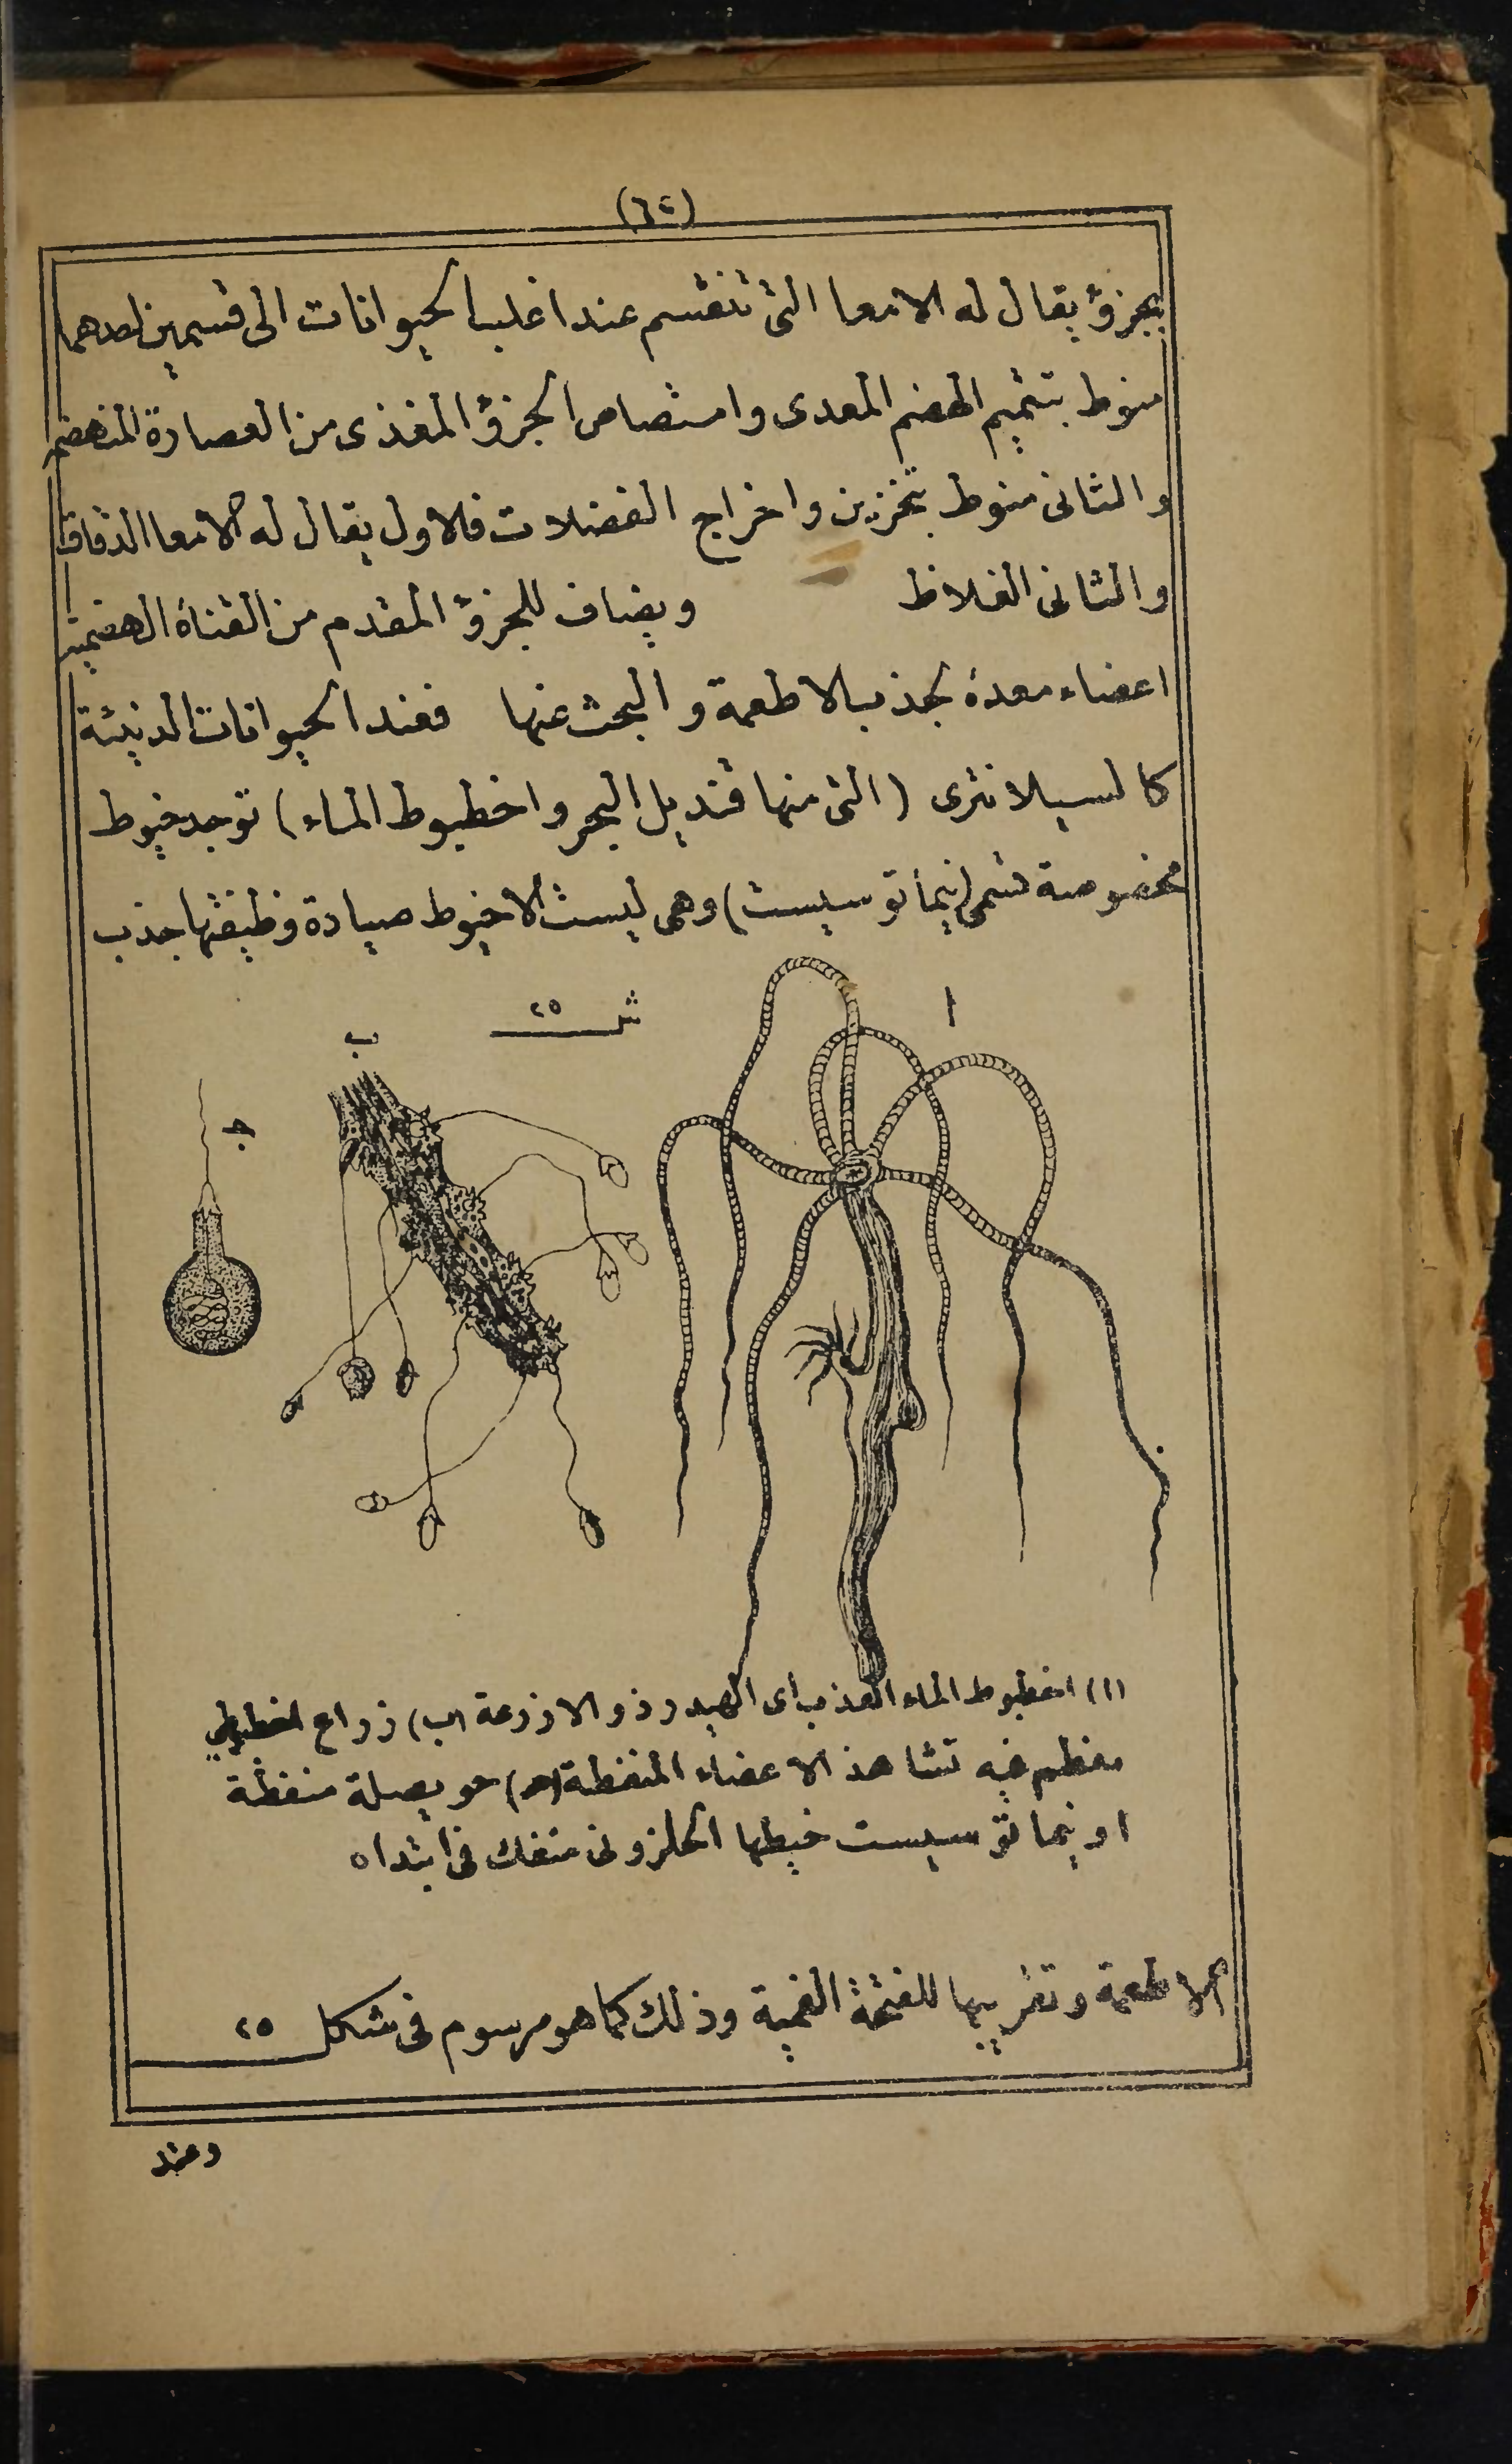 (٦٤)
بجزؤ يقال له الامعا التى تنقسم عند اغلب الحيوانات الى قسمين احدهما
منوط بتتميم الهضم المعدى وامتصاص الجزؤ المغذى من العصارة المنهضمة
والثانى منوط بتخزين واخراج الفضلات فالاول يقال له الامعا الدقاق
والثانى الغلاظ ويضاف للجزؤ المقدم من القناة الهضمية
اعضاء معدة لجذب الاطعمة والبحث عنها فعند الحيوانات الدنيئة
كالسيلانترى (التى منها قنديل البحر واخطبوط الماء) توجد خيوط
مخصوصة تسمى (نيماتوسيست) وهى ليست الاخيوط صيادة وظيفتها جذب
شـ ٢٥
ا
ب
جـ
(ا) اخطبوط الماء العذب اى الهيدر ذو الاذرعة (ب) ذراع اخطبوطى
معظم فيه تشاهذ الاعضاء المنفطة (حـ) حويصلة منفطة
او نيماتوسيست خيطها الحلزونى منفك فى ابتداه
الاطعمة وتقريبها للفتحة الفمية وذلك كما هو مرسوم فى شكل ٢٥
وعند